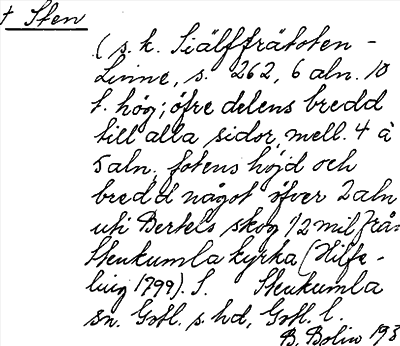 † Sten
(s. k. Siälffrätoten -
Linne, s. 262, 6 aln. 10
t. hög; öfre delens bredd
till alla sidor, mell. 4 à
5 aln, fotens höjd och
bredd något öfver 2 aln
uti Bertels skog 1/2 mil från
Stenkumla kyrka (Hilfe-
ling 1799). S. Stenkumla
sn. Gotl. s. hd, Gotl. l.
B. Bolin 193